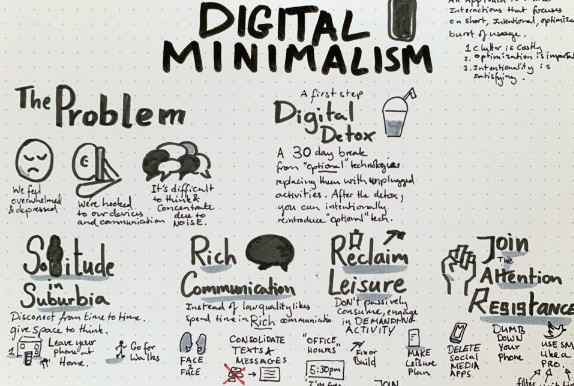 DIGITAL
MINIMALISM
Interactions that focuses
on short, Intentional, optimized
burst of usage.
1. Clutter is Costly
2. Optimization is important
3. Intentionality is
satisfying.
The Problem
We feel
overwhelmed
& depressed
We're hooked
to our devices
and communication
It's difficult
to think &
Concentrate
due to
NOISE.
A first step
Digital
Detox
A 30 day break
from "optional" technologies
replacing them with unplugged
activities. After the detox,
you can intentionally
reintroduce "optional" tech.
Solitude
in
Suburbia
Disconect from time to time.
give space to think.
1
Leave your
phone at
Home.
Go for
Walks
Rich
Communication
Instead of low quality likes
spend time in Rich communication
FACE
to
FACE
CONSOLIDATE
TEXTS &
MESSAGES
"OFFICE
HOURS"
5:30pm
Reclaim
Leisure
Don't passively
consume, engage
in DEMANDING
ACTIVITY
Fix or
Build
MAKE
Leisure
Plans
JOIN
Join
The
Attention
Resistance
DELETE
Social
MEDIA
APPS
DUMB
DOWN
Your
Phone
USE SM
Like a
PRO.